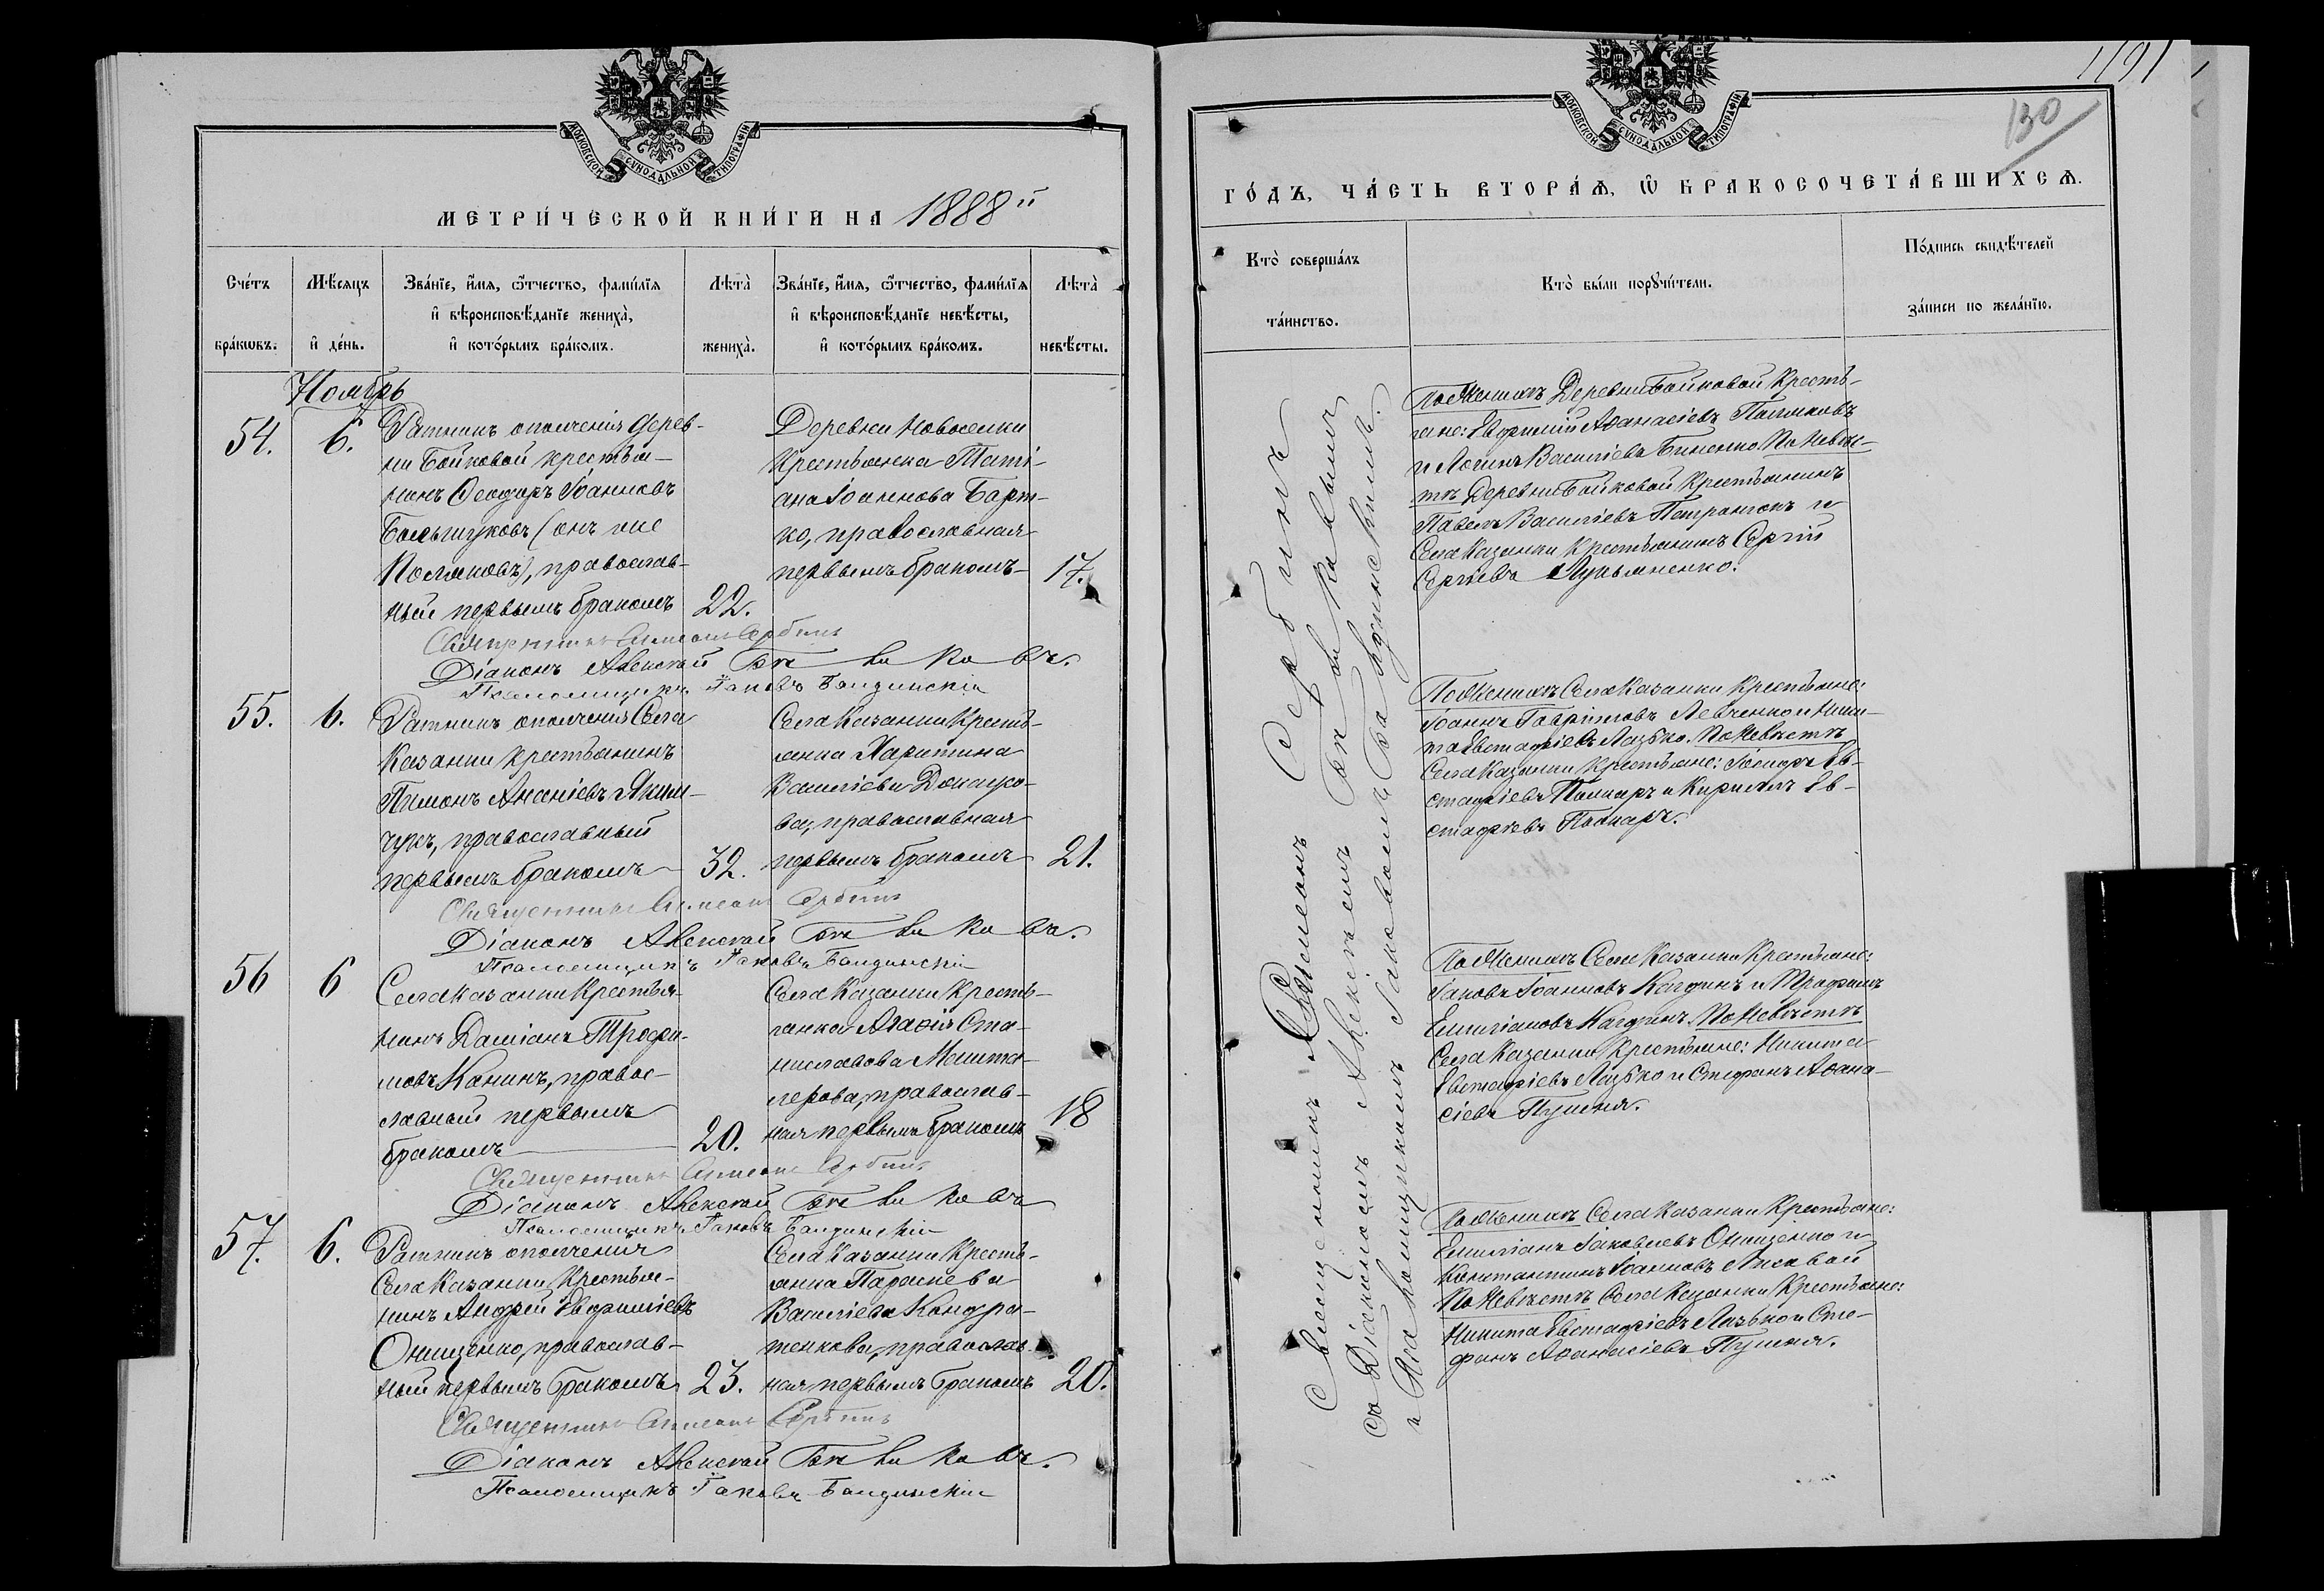 МОСКОВСКОЙ СѴНОДАЛЬНОЙ ТИПОГРАФІИ
МЕТРИ́ЧЕСКОЙ КНИ́ГИ НА 1888й
Сче́тъ бра́кωвъ.
Мѣ́сяцъ и҆ де́нь.
Зва́нїе, и҆́мѧ, ѻ҆́тчество, фами́лїѧ
и҆ вѣроисповѣ́данїе жениха̀,
и҆ кото́рымъ бра́комъ.
Лѣта̀ жениха̀.
Зва́нїе, и҆́мѧ, ѻ҆́тчество, фами́лїѧ
и҆ вѣроисповѣ́данїе невѣ́сты,
и҆ кото́рымъ бра́комъ.
Лѣта̀ невѣ́сты.
Ноябрь
54. 6.
Ратникъ ополченія дерев-
ни Бойковой крестья-
нинъ Ѳеодоръ Іоанновъ
(онъ же
православ-
ный первымъ бракомъ 22.
Деревни Новоселки
Крестьянка Таті-
ана Іоаннова Барт-
ко, православная
первымъ бракомъ 17.
Священникъ Симеонъ Сербинъ
Діаконъ Алексѣй
Псаломщикъ Іаковъ Бандинскій
55. 6.
Ратникъ ополченія Села
Казанки крестьянинъ
Ананіевъ
чукъ, православный
первымъ бракомъ 32.
Села Казанки Кресть-
янка Харитина
Василіева
ва, православная
первымъ бракомъ 21.
Священникъ Симеонъ Сербинъ
Діаконъ Алексѣй
Псаломщикъ Іаковъ Бандинскій
56 6
Села Казанки Крестья-
нинъ Даміанъ Трофи-
мовъ Канинъ, правос-
лавный первымъ
бракомъ 20.
Села Казанки Кресть-
янка Агаѳія Ста-
ниславова
православ-
ная первымъ бракомъ 18
Священникъ Симеонъ Сербинъ
Діаконъ Алексѣй
Псаломщикъ Іаковъ Бандинскій
57. 6.
Ратникъ ополченія
Села Казанки Крестья-
нинъ Андрей Евфиміевъ
Онищенко, православ-
ный первымъ бракомъ 23.
Села Казанки Кресть-
янка Параскева
Василіева Кондра-
тенкова, православ-
ная первымъ бракомъ 20.
Священникъ Симеонъ Сербинъ
Діаконъ Алексѣй
Псаломщикъ Іаковъ Бандинскій
МОСКОВСКОЙ СѴНОДАЛЬНОЙ ТИПОГРАФІИ
130
ГО́ДЪ, ЧА́СТЬ ВТОРА́Ѧ, Ѡ҆ БРАКОСОЧЕТА́ВШИХСѦ.
Кто̀ соверша́лъ
та́инство.
Кто̀ бы́ли порꙋчи́тели.
По́дпись свидѣ́телей
за́писи по жела́нїю.
Священникъ Симеонъ Сербинъ
съ Діакономъ Алексѣемъ
и Псаломщикомъ Іаковомъ Бандинскимъ.
По Женихѣ Деревни Бойковой Кресть-
яне: Евфимій Аѳанасіевъ
и Логинъ Василіевъ По Невѣс-
тѣ Деревни Бойковой Крестьянинъ
Павелъ Василіевъ и
Села Казанки Крестьянинъ Сергій
Сергіевъ Лукьяненко.
По Женихѣ Села Казанки Крестьяне:
Іоаннъ Гавріиловъ Левченко и Ники-
та Евстафіевъ Лазько. По Невѣстѣ
Села Казанки Крестьяне: Ев-
стафіевъ Поснаръ и Кириллъ Ев-
стафіевъ Поснаръ.
По Женихѣ Села Казанки Крестьяне:
Іаковъ Іоанновъ и Трофимъ
Емиліановъ По Невѣстѣ
Села Казанки Крестьяне: Никита
Евстафіевъ Лазько и Стефанъ Аѳана-
сіевъ
По Женихѣ Села Казанки Крестьяне:
Емиліанъ Іаковлевъ Онищенко и
Константинъ Іоанновъ Лисовой
По Невѣстѣ Села Казанки Крестьяне:
Никита Евстафіевъ Лазько и Сте-
фанъ Аѳанасіевъ